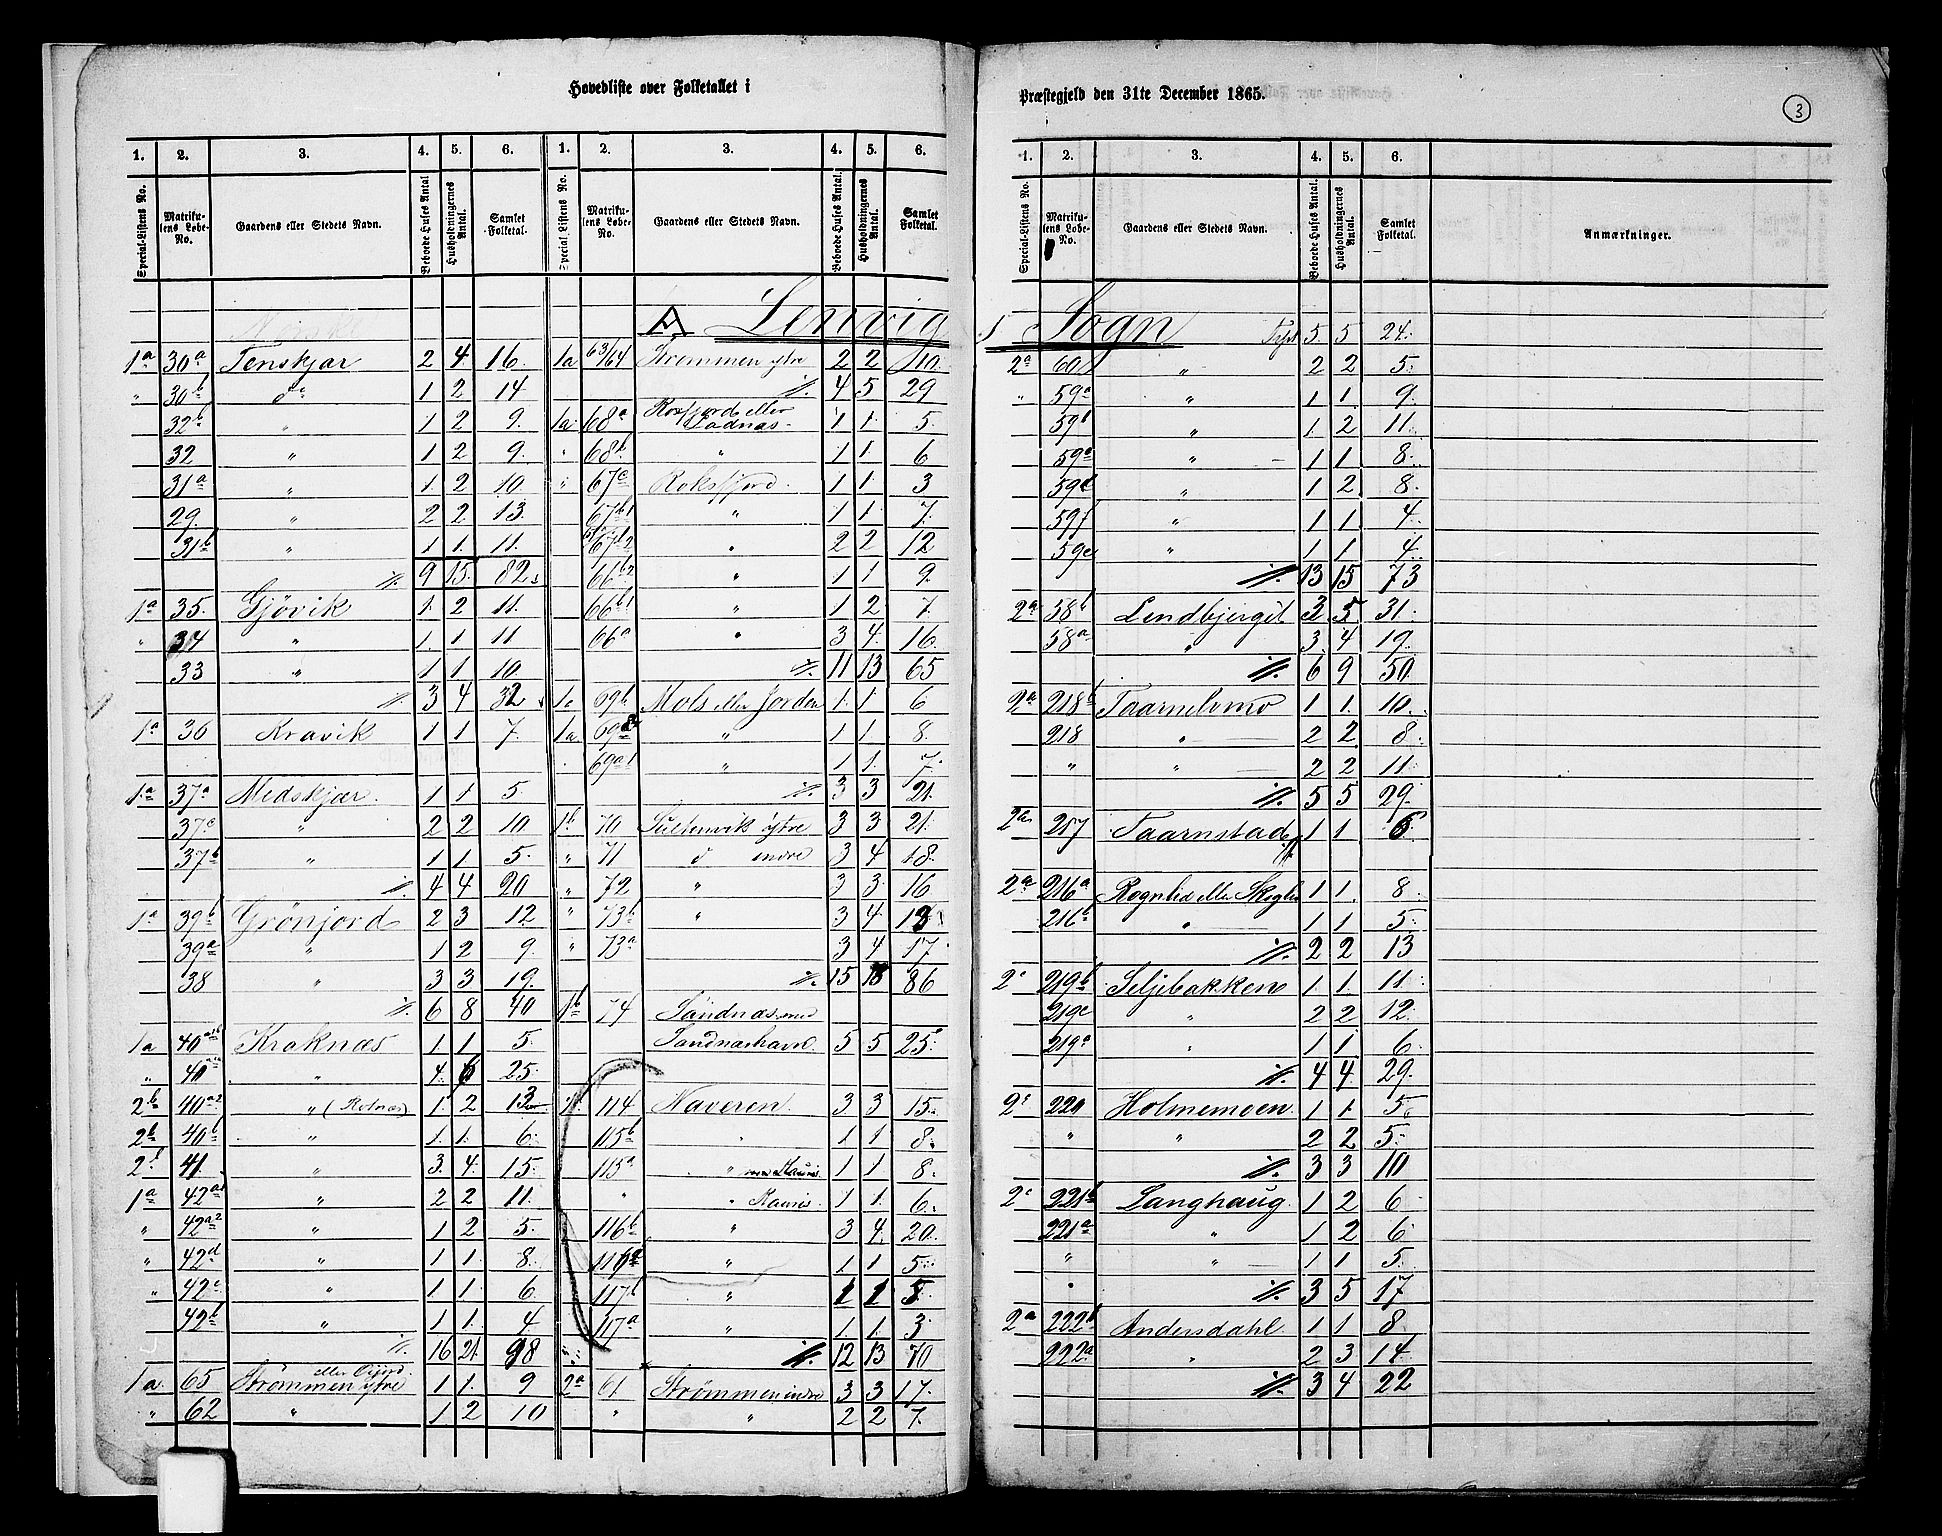 Hovedliste over Folketallet i
1. 2. 3. 4. 5. 6. 1. 2. 3. 4. 5. 6.
Special-Listens No. Matrikulens Løbe-No. Gaardens eller Stedets Navn. Beboede Huses Antal Husholdningernes Antal. Samlet Folketal. Special Listens No. Matrikulens Løbe-No. Gaardens eller Stedets Navn. Beboede Huses Antal. Husholdningernes Antal. Samlet Folketal.
A Lenvig
1a 30a Tenskjær 2 4 16.
" 30b do 1 2 14.
32b " 1 2 9.
32 " 1 2 9.
31a " 1. 2 10.
29. " 2 2 13.
31b " 1 1. 11.
9 15. 82
1a 35. Gjøvik 1. 2 11.
" 34 " 1. 1 11
33 " 1 1 10.
3 4 32
1a 36 Kravik 1 1 7.
1a 37a Medskjær. 1 1 5.
37c " 2 2 10
37b " 1 1. 5.
4 4 20
1a 39b Grönjord 2 3 12
39a " 1 2 9.
38 " 3 3 19.
6 8 40
1a 40 Kraknæs 1 1 5.
" 40 " 4. 6 25.
2b 40a2 " (Rotnæs) 1. 2 13
2b 40b " 1. 1. 6.
2b 41. " 3. 4. 15.
1a 42a1 " 2 2 11.
" 42a2 " 1 2 5.
" 42d " 1 1 8.
" 42c " 1 1. 6.
42b " 1 1. 4
16 21. 98
1a 65 Strømmen ytre eller 1 1. 9
" 62 " 1 2 10
1a 63/64 Strømmen ytre 2 2 10.
4 5 29
1a 68a Rosfjord eller Sodnæs 1 1. 5.
" 68b " 1 1. 6
" 67c Roksfjord. 1 1. 3
67b1 " 1 1. 7.
67b2 " 2 2 12
66b2 " 1 1 9.
66b1 " 1 2 7.
66a " 3 4. 16.
11 13 65
1c 69b Mols eller Jorden 1. 1. 6
1a 69a2 " 1 1. 8.
69a1 " 1 1. 7.
3 3 21.
1b 70 Sultenvik ytre 3 3 21.
" 71 d indre 3 4 18.
" 72 " 3 3. 16
" 73b " 3 4. 18
" 73a 3 4 17.
15 18 86
1b 74 Sandnæs med
Sandnæshavn. 5 5 25.
114 Haveren. 3 3 15.
115b " 1 1 8.
115a " med Kaunis. 1 1 8.
" " Kaunis. 1 1. 6.
116b " 3 4. 20.
116a " 1 1 5.
117b " 1 1 5.
117a " 1. 1. 3
12 13 70
2a 61 Strømmen indre 3 3 17.
" " 2 2 7.
Præstegjeld den 31te December 1865.
3
1. 2. 3. 4. 5. 6.
Special-Listens No. Matrikulens Løbe-No. Gaardens eller Stedets Navn. Beboede Huses Antal. Husholdningernes Antal. Samlet Folketal. Anmærkninger.
s Sogn 5. 5 24.
2a 60 " 2 2 5.
" 59a " 1 1. 9.
59b " 1 2 11.
59a " 1 1. 8.
59d " 1 2 8.
59f " 1 1. 4.
59e " 1 1. 4.
13 15 73
2a 58b Lendbjerget 3 5 31.
58a " 3. 4 19.
6 9 50.
2a 218b Taarnelvmo 1 1. 10.
218 " 2 2. 8.
" " 2 2 11.
5 5 29.
2a 217 Taarnstad 1 1 6.
2a 216a Rognlid eller 1 1. 8.
216b " 1 1 5.
2 2 13
2c 219b Seljebakken 1. 1. 11.
219c " 2 2 12.
219a " 1 1. 6.
4 4. 29.
2c 220 Holmemoen. 1 1. 5.
" " 2 2 5.
3 3 10
2c 221b Langhaug 1 2 6.
221a " 1 2 6
" " 1 1 5.
" 3 5 17
2a 222b Andersdahl. 1 1 8.
222a " 2 3 14.
3 4 22